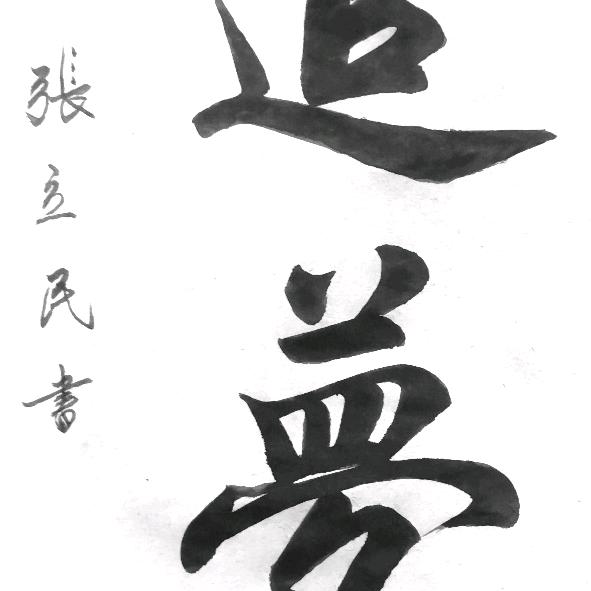 追夢
張立民書